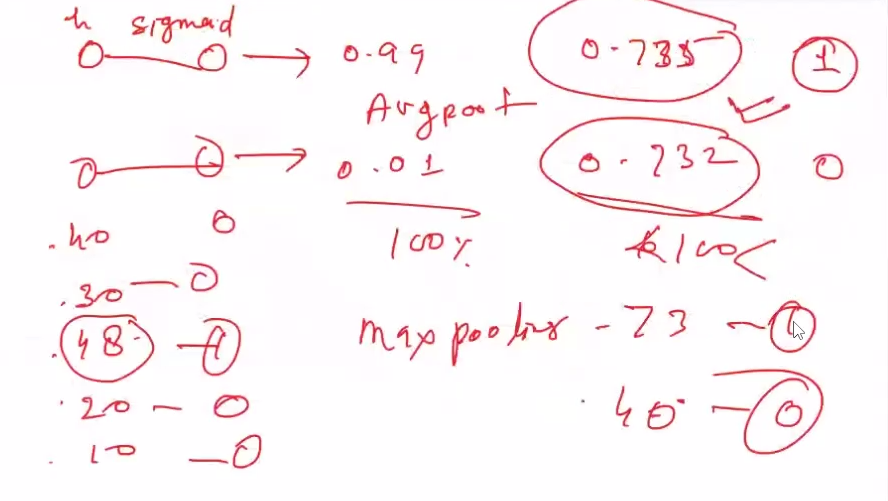 h sigmad
O — O → 0.99 0.735 1
Avgpool
O — O → 0.01 0.732 0
100%
.40 0
.30 — 0
.48 — 1
.20 — 0
.10 — 0
max pooling - 73 — 1
.40 — 0